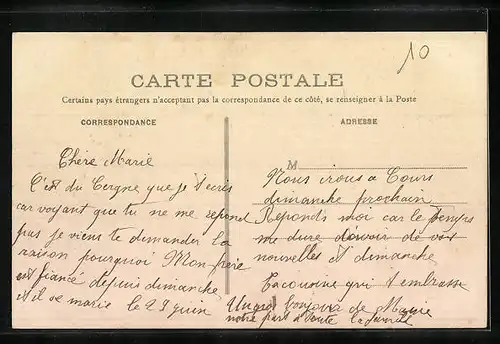 10
CARTE POSTALE
Certains pays étrangers n'acceptant pas la correspondance de ce côté, se renseigner à la Poste
CORRESPONDANCE
Chère Marie
C'est du Cergne que je t'ecris
car voyant que tu ne me repond
pas je viens te demander la
raison pourquoi Mon frère
est fiancé depuis dimanche
et il se marie le 23 juin
ADRESSE
M
Nous irons a Cours
dimanche prochain
Reponds moi car le temps
me dure davoir de vos
nouvelles et dimanche
Ta cousine qui t embrasse
Un gros bonjour de Marie
notre part a toute la famille